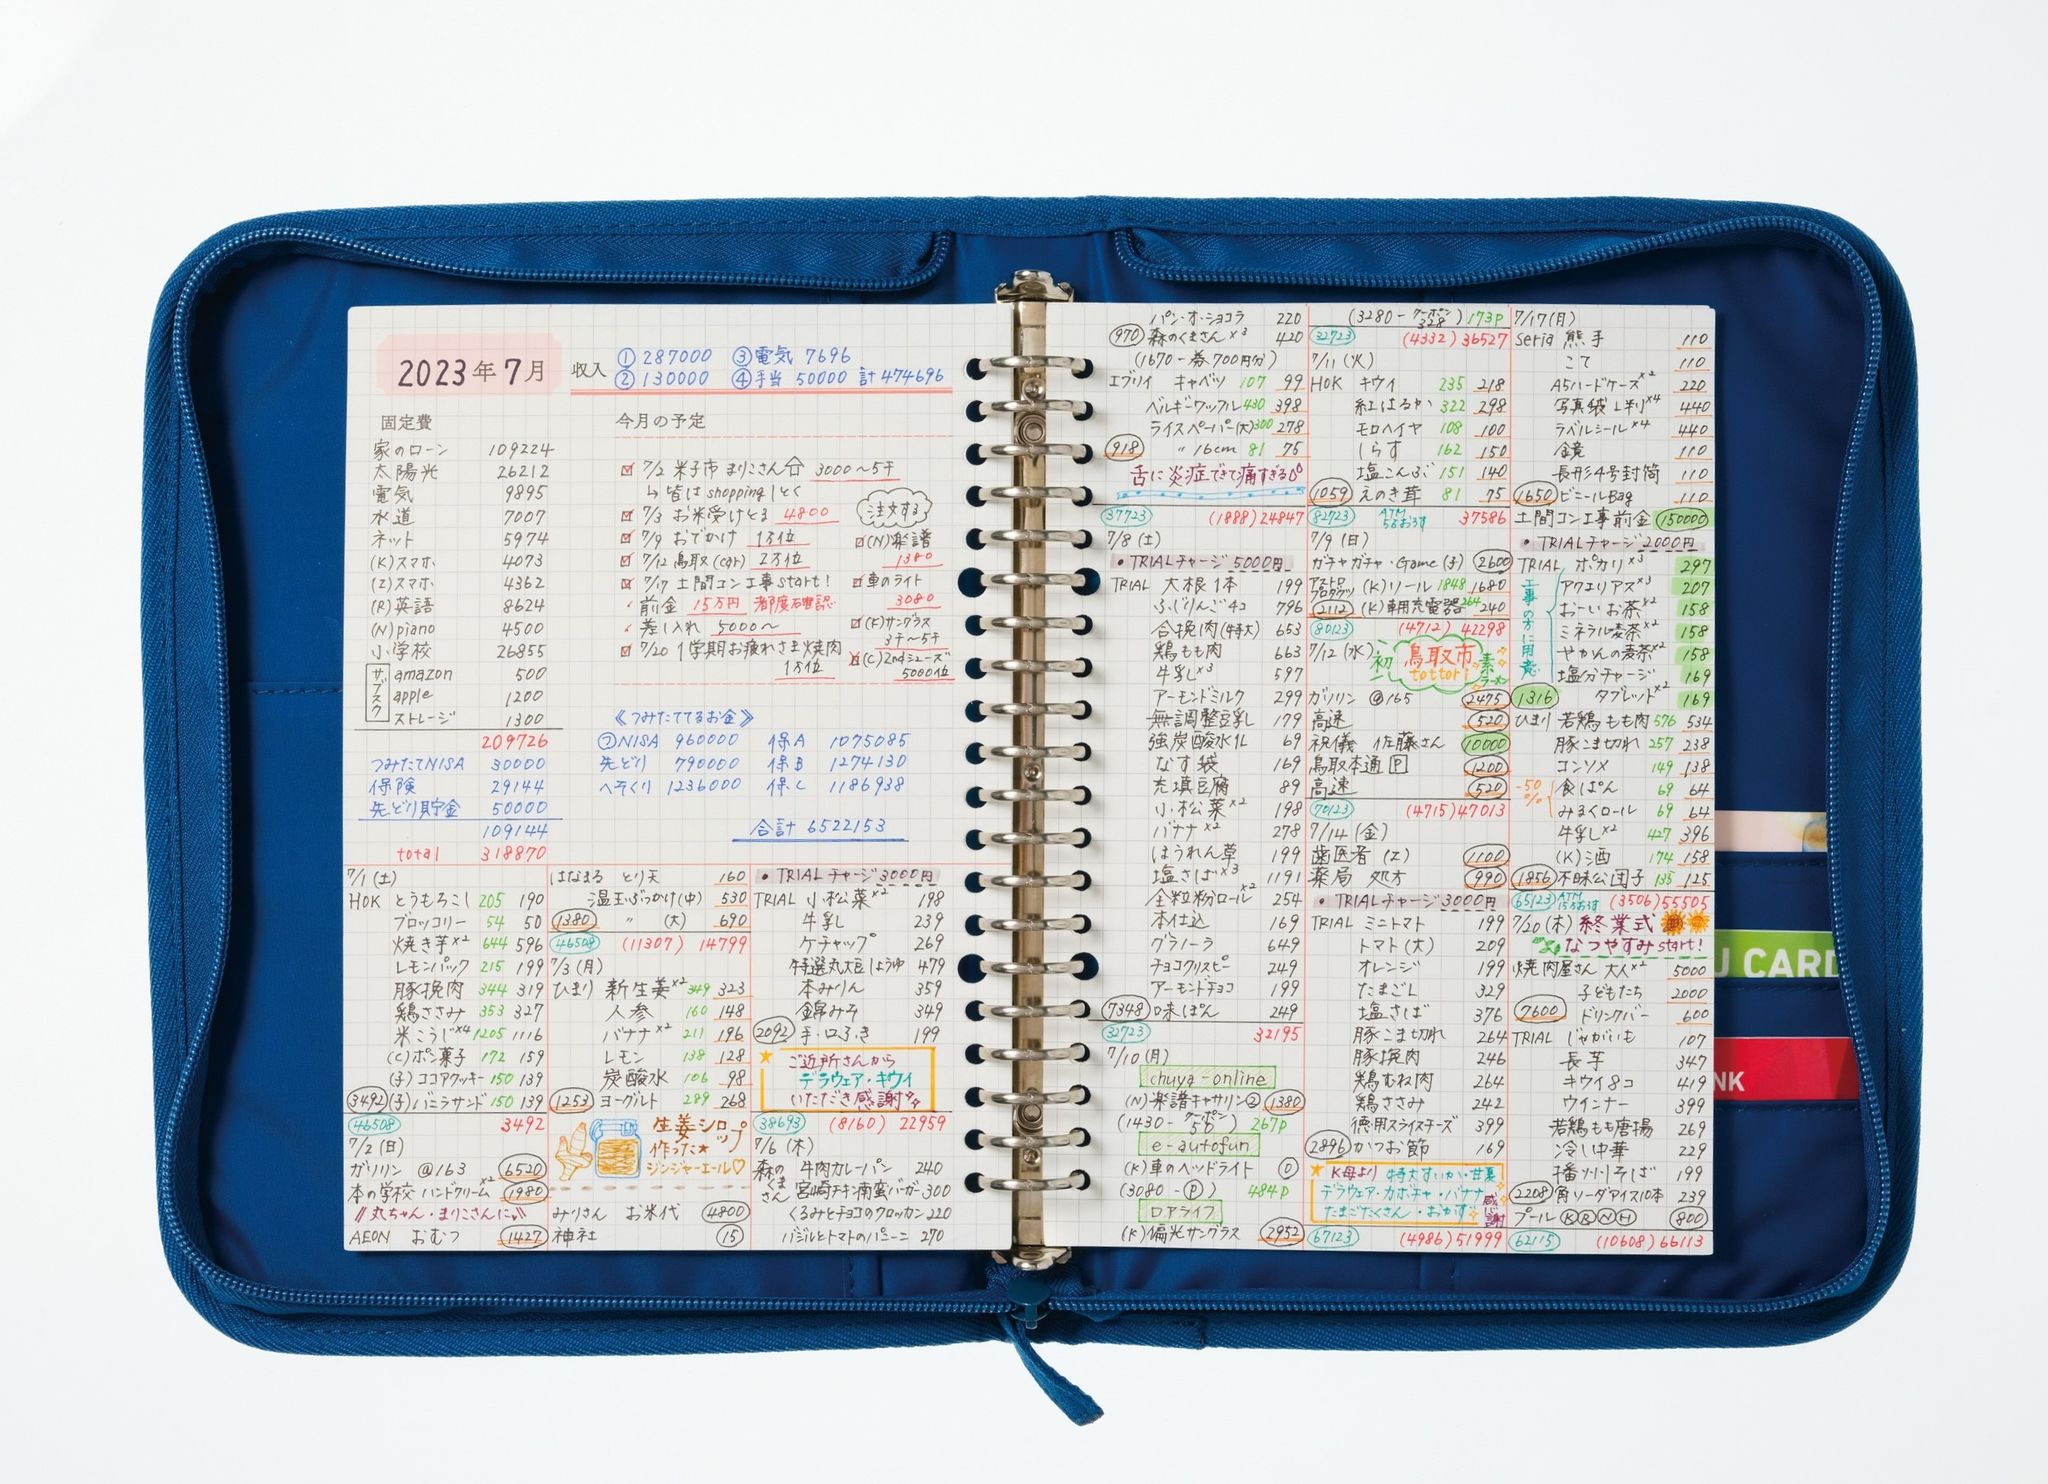 2023年7月
収入 ① 287000 ③電気 7696
② 130000 ④手当 50000 計474696
固定費
家のローン 109224
太陽光 26212
電気 9895
水道 7007
ネット 5974
(K)スマホ 4073
(I)スマホ 4362
(R)英語 8624
(N)piano 4500
小学校 26855
サブスク
amazon 500
apple 1200
ストレージ 1300
209726
つみたてNISA 30000
保険 29144
先どり貯金 50000
109144
total 318870
今月の予定
7/2 米子市 まりこさん 3000〜5千
↳皆はshoppingしとく
7/3 お米受けとる 4800
7/9 おでかけ 1万位
7/12 鳥取(car) 2万位
7/17 土間コン工事start!
前金 15万円 都度確認
差し入れ 5000〜
7/20 1学期お疲れさま焼肉
1万位
注文する
(N)楽譜
1380
車のライト
3080
(K)サングラス
3千〜5千
(C)2ndシューズ
5000位
≪つみたててるお金≫
⑦NISA 960000 保A 1075085
先どり 790000 保B 1274130
へそくり 1236000 保C 1186938
合計 6522153
7/1(土)
HOK とうもろこし 205 190
ブロッコリー 54 50
焼き芋×2 644 596
レモンパック 215 199
豚挽肉 344 319
鶏ささみ 353 327
米こうじ×4 1205 1116
(C)ポン菓子 172 159
(子)ココアクッキー 150 139
3492 (子)バニラサンド 150 139
46508 3492
7/2(日)
ガソリン @163 6520
本の学校 ハンドクリーム×2 1980
〃丸ちゃん・まりこさんに〃
AEON おむつ 1427
はなまる とり天 160
温玉ぶっかけ(中) 530
1380 〃 (大) 690
46508 (11307) 14799
7/3(月)
ひまり 新生姜×2 349 323
人参 160 148
バナナ×2 211 196
レモン 138 128
炭酸水 106 98
1253 ヨーグルト 289 268
生姜シロップ
作った★
ジンジャーエール♡
みりさん お米代 4800
神社 15
• TRIALチャージ3000円
TRIAL 小松菜×2 198
牛乳 239
ケチャップ 269
特選丸大豆しょうゆ 479
本みりん 359
金錦みそ 349
2092 手・口ふき 199
★ご近所さんから
デラウェア・キウイ
いただき感謝
38693 (8160) 22959
7/6(木)
森のくまさん 牛肉カレーパン 240
宮崎チキン南蛮バーガー 300
くるみとチョコのクロッカン 220
バジルとトマトのパニーニ 270
パン・オ・ショコラ 220
970 森のくまさん×3 420
(1670-券700円分)
エブリイ キャベツ 107 99
ベルギーワッフル 430 398
ライスペーパー(大) 300 278
918 〃16cm 81 75
舌に炎症できて痛すぎる
37723 (1888) 24847
7/8(土)
• TRIALチャージ5000円
TRIAL 大根1本 199
ふじりんご4コ 796
合挽肉(特大) 653
鶏もも肉 663
牛乳×3 597
アーモンドミルク 299
無調整豆乳 179
強炭酸水1L 69
なす袋 169
充填豆腐 89
小松菜×2 198
バナナ×2 278
ほうれん草 199
塩さば×3 1191
全粒粉ロール×2 254
本仕込 169
グラノーラ 649
チョコクリスピー 249
アーモンドチョコ 199
7348 味ぽん 249
32723 32195
7/10(月)
chuya-online
(N)楽譜キャサリン② 1380
(1430-クーポン50) 267P
e-autofun
(K)車のヘッドライト 0
(3080-Ⓟ) 484P
ロアライフ
(K)偏光サングラス 2952
(3280-クーポン328) 173P
32723 (4332) 36527
7/11(火)
HOK キウイ 235 218
紅はるか 322 298
モロヘイヤ 108 100
しらす 162 150
塩こんぶ 151 140
1059 えのき茸 81 75
82723 ATM 5万おろす 37586
7/9(日)
ガチャガチャ・Game(子) 2600
アストロプロダクツ (K)リール 1848 1680
2112 (K)車用充電器 264 240
80123 (4712) 42298
7/12(水) 初 鳥取市 素ラーメン
tottori
ガソリン @165 2475
高速 520
祝儀 佐藤さん 10000
鳥取本通 P 1200
高速 520
70123 (4715) 47013
7/14(金)
歯医者 (I) 1100
薬局 処方 990
• TRIALチャージ3000円
TRIAL ミニトマト 199
トマト(大) 209
オレンジ 199
たまごL 329
塩さば 376
豚こま切れ 264
豚挽肉 246
鶏むね肉 264
鶏ささみ 242
徳用スライスチーズ 399
2896 かつお節 169
★K母より 特大すいか・甘夏
デラウェア・カボチャ・バナナ
たまごたくさん・おかず 感謝
67123 (4986) 51999
7/17(月)
seria 熊手 110
こて 110
A5ハードケース×2 220
写真袋L判×4 440
ラベルシール×4 440
鏡 110
長形4号封筒 110
1650 ビニールBag 110
土間コン工事前金 150000
• TRIALチャージ2000円
TRIAL ポカリ×3 297
アクエリアス×3 207
おーいお茶×2 158
ミネラル麦茶×2 158
やかんの麦茶×2 158
塩分チャージ 169
1316 タブレット×2 169
工事の方に用意
ひまり 若鶏もも肉 576 534
豚こま切れ 257 238
コンソメ 149 138
-50% 食ぱん 69 64
みるくロール 69 64
牛乳×2 427 396
(K)酒 174 158
1856 不昧公団子 135 125
65123 ATM 15万おろす (3506) 55505
7/20(木) 終業式
なつやすみstart!
焼肉屋さん 大人×2 5000
子どもたち 2000
7600 ドリンクバー 600
TRIAL じゃがいも 107
長芋 347
キウイ8コ 419
ウインナー 399
若鶏もも唐揚 269
冷し中華 229
播州そば 199
2208 角ソーダアイス10本 239
プール ⓀⓇⓃⒽ 800
62115 (10608) 66113
U CARD
NK